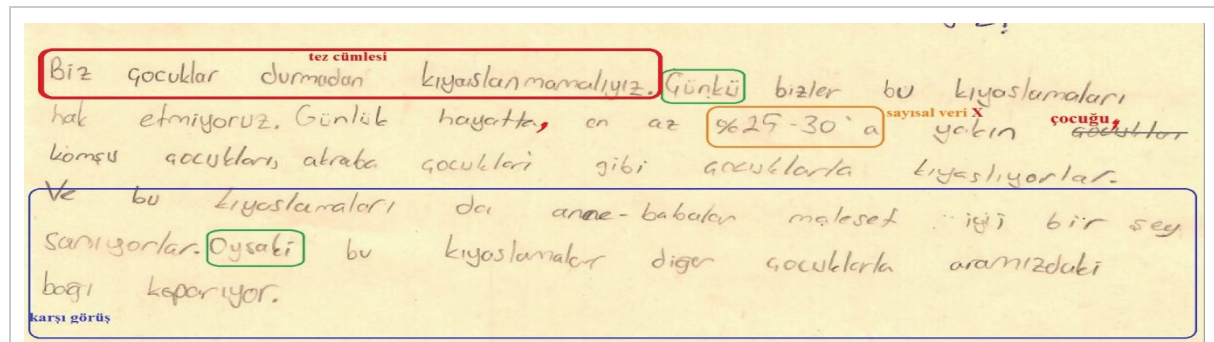 tez cümlesi
Biz çocuklar durmadan kıyaslanmamalıyız. Çünkü bizler bu kıyaslamaları
hak etmiyoruz. Günlük hayatta, en az %25-30'a sayısal veri X yakın çocuğu, çocuklar
komşu çocukları, akraba çocukları gibi çocuklarla kıyaslıyorlar.
Ve bu kıyaslamaları da anne-babalar malesef iyi bir şey
sanıyorlar. Oysaki bu kıyaslamalar diğer çocuklarla aramızdaki
bağı koparıyor.
karşı görüş